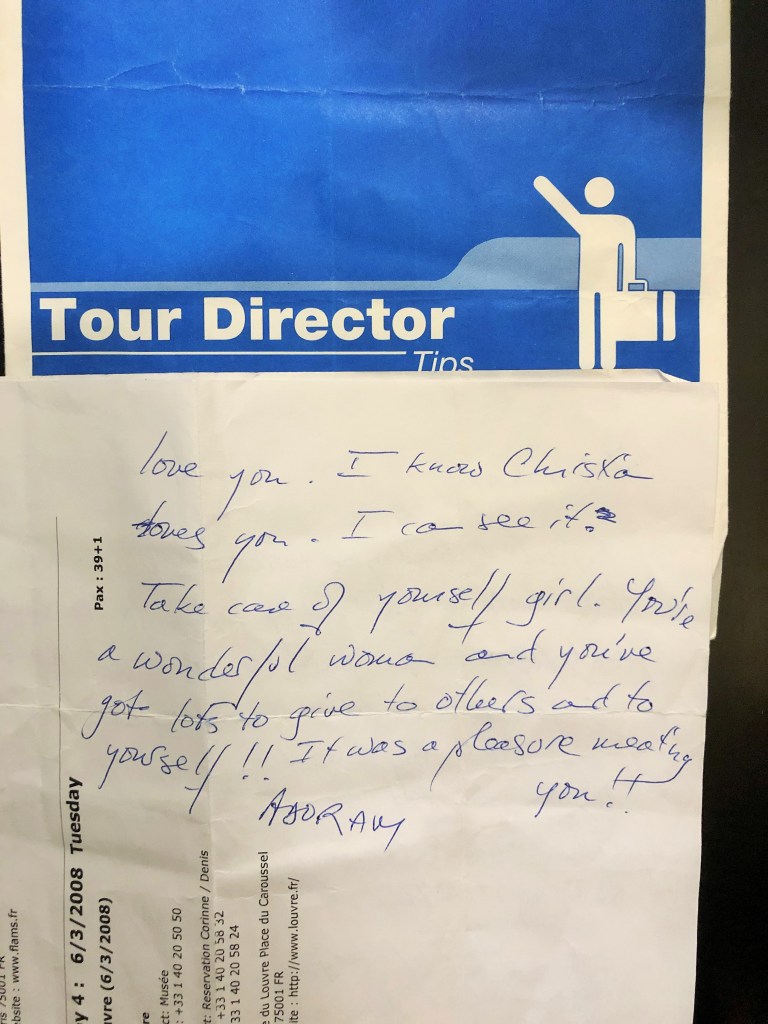 Tour Director
Tips
love you. I know Christa
loves you. I can see it.
Take care of yourself girl. You're
a wonderful woman and you've
got lots to give to others and to
yourself!! It was a pleasure meeting
you!!
Pax : 39+1
y 4 : 6/3/2008 Tuesday
uvre (6/3/2008)
75001 FR
bsite : www.flams.fr
re
ct: Musée
: +33 1 40 20 50 50
t: Reservation Corinne / Denis
+33 1 40 20 58 32
33 1 40 20 58 24
e du Louvre Place du Caroussel
75001 FR
ite : http://www.louvre.fr/